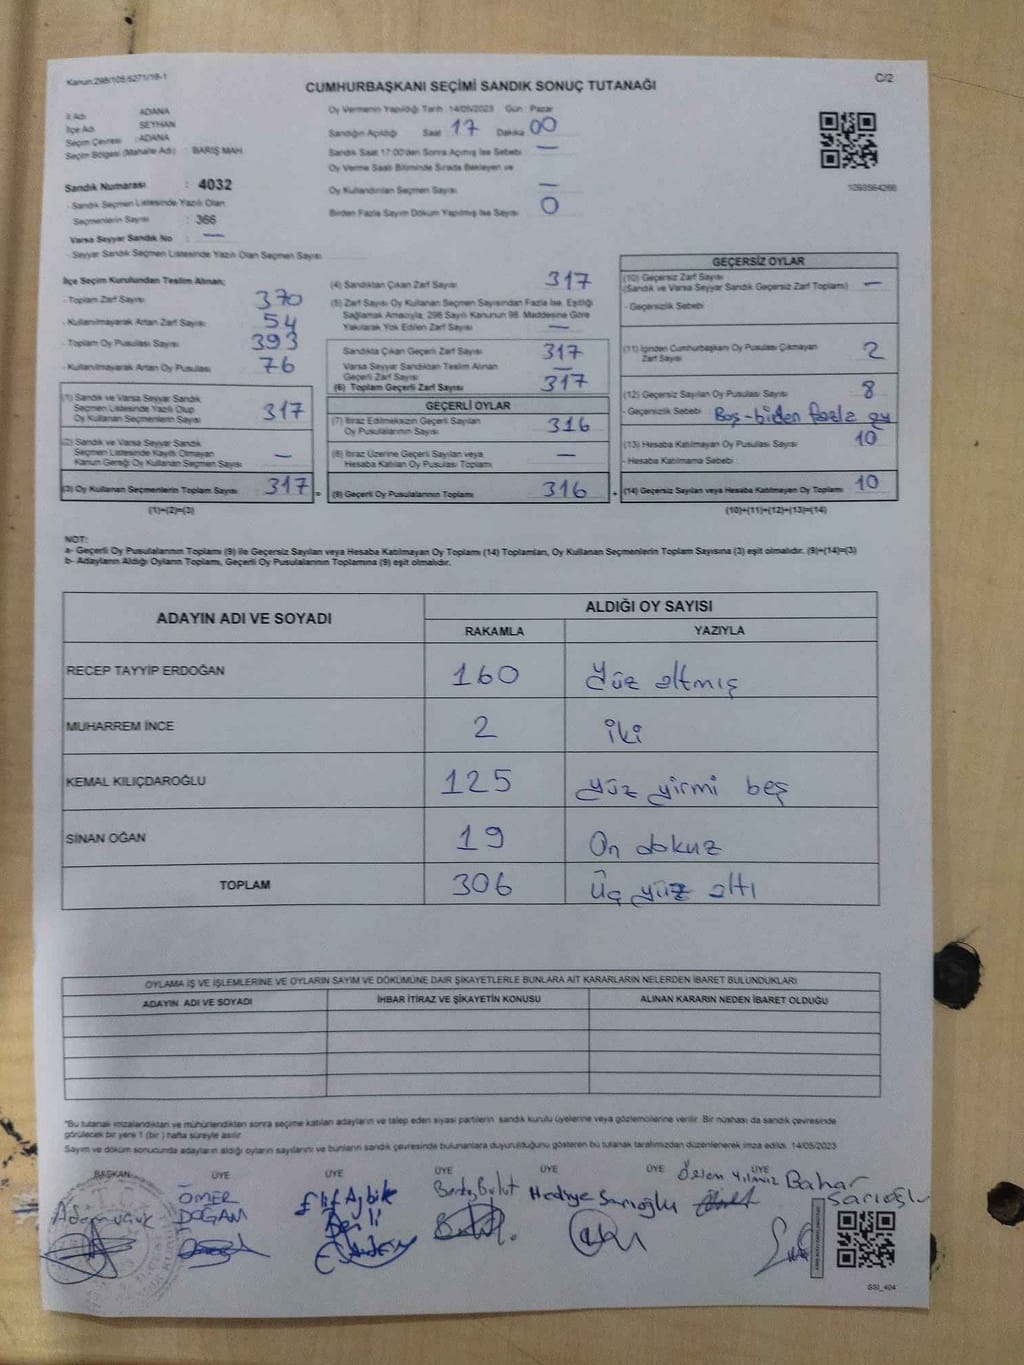 Kanun:298/105:6271/18-1
C/2
CUMHURBAŞKANI SEÇİMİ SANDIK SONUÇ TUTANAĞI
İl Adı : ADANA
İlçe Adı : SEYHAN
Seçim Çevresi : ADANA
Seçim Bölgesi (Mahalle Adı) : BARIŞ MAH.
Sandık Numarası : 4032
- Sandık Seçmen Listesinde Yazılı Olan
Seçmenlerin Sayısı : 366
Varsa Seyyar Sandık No : —
- Seyyar Sandık Seçmen Listesinde Yazılı Olan Seçmen Sayısı :
Oy Vermenin Yapıldığı Tarih 14/05/2023 Gün : Pazar
Sandığın Açıldığı Saat 17 Dakika 00
Sandık Saat 17:00'den Sonra Açılmış İse Sebebi —
Oy Verme Saati Bitiminde Sırada Bekleyen ve
Oy Kullandırılan Seçmen Sayısı —
Birden Fazla Sayım Döküm Yapılmış İse Sayısı 0
1093564266
İlçe Seçim Kurulundan Teslim Alınan;
- Toplam Zarf Sayısı 370
- Kullanılmayarak Artan Zarf Sayısı 54
- Toplam Oy Pusulası Sayısı 393
- Kullanılmayarak Artan Oy Pusulası 76
(1) Sandık ve Varsa Seyyar Sandık
Seçmen Listesinde Yazılı Olup
Oy Kullanan Seçmenlerin Sayısı 317
(2) Sandık ve Varsa Seyyar Sandık
Seçmen Listesinde Kayıtlı Olmayan
Kanun Gereği Oy Kullanan Seçmen Sayısı —
(3) Oy Kullanan Seçmenlerin Toplam Sayısı 317 =
(1)+(2)=(3)
(4) Sandıktan Çıkan Zarf Sayısı 317
(5) Zarf Sayısı Oy Kullanan Seçmen Sayısından Fazla İse, Eşitliği
Sağlamak Amacıyla, 298 Sayılı Kanunun 98. Maddesine Göre
Yakılarak Yok Edilen Zarf Sayısı —
Sandıkta Çıkan Geçerli Zarf Sayısı 317
Varsa Seyyar Sandıktan Teslim Alınan
Geçerli Zarf Sayısı —
(6) Toplam Geçerli Zarf Sayısı 317
GEÇERLİ OYLAR
(7) İtiraz Edilmeksizin Geçerli Sayılan
Oy Pusulalarının Sayısı 316
(8) İtiraz Üzerine Geçerli Sayılan veya
Hesaba Katılan Oy Pusulası Toplamı —
(9) Geçerli Oy Pusulalarının Toplamı 316 +
GEÇERSİZ OYLAR
(10) Geçersiz Zarf Sayısı
(Sandık ve Varsa Seyyar Sandık Geçersiz Zarf Toplamı) —
- Geçersizlik Sebebi
(11) İçinden Cumhurbaşkanı Oy Pusulası Çıkmayan
Zarf Sayısı 2
(12) Geçersiz Sayılan Oy Pusulası Sayısı 8
- Geçersizlik Sebebi : Boş - birden fazla oy
(13) Hesaba Katılmayan Oy Pusulası Sayısı 10
- Hesaba Katılmama Sebebi :
(14) Geçersiz Sayılan veya Hesaba Katılmayan Oy Toplamı 10
(10)+(11)+(12)+(13)=(14)
NOT:
a- Geçerli Oy Pusulalarının Toplamı (9) ile Geçersiz Sayılan veya Hesaba Katılmayan Oy Toplamı (14) Toplamları, Oy Kullanan Seçmenlerin Toplam Sayısına (3) eşit olmalıdır. (9)+(14)=(3)
b- Adayların Aldığı Oyların Toplamı, Geçerli Oy Pusulalarının Toplamına (9) eşit olmalıdır.
ADAYIN ADI VE SOYADI
ALDIĞI OY SAYISI
RAKAMLA YAZIYLA
RECEP TAYYİP ERDOĞAN 160 yüz altmış
MUHARREM İNCE 2 iki
KEMAL KILIÇDAROĞLU 125 yüz yirmi beş
SİNAN OĞAN 19 On dokuz
TOPLAM 306 üç yüz altı
OYLAMA İŞ VE İŞLEMLERİNE VE OYLARIN SAYIM VE DÖKÜMÜNE DAİR ŞİKAYETLERLE BUNLARA AİT KARARLARIN NELERDEN İBARET BULUNDUKLARI
ADAYIN ADI VE SOYADI İHBAR İTİRAZ VE ŞİKAYETİN KONUSU ALINAN KARARIN NEDEN İBARET OLDUĞU
*Bu tutanak imzalandıktan ve mühürlendikten sonra seçime katılan adayların ve talep eden siyasi partilerin sandık kurulu üyelerine veya gözlemcilerine verilir. Bir nüshası da sandık çevresinde
görülecek bir yere 1 (bir ) hafta süreyle asılır
Sayım ve döküm sonucunda adayların aldığı oyların sayılarını ve bunların sandık çevresinde bulunanlara duyurulduğunu gösteren bu tutanak tarafımızdan düzenlenerek imza edildi. 14/05/2023
BAŞKAN ÜYE ÜYE ÜYE ÜYE ÜYE ÜYE
ÖMER DOĞAN
Elif Aybik
Hediye Sarıoğlu
Yılmaz
Bahar Sarıoğlu
SSI_404